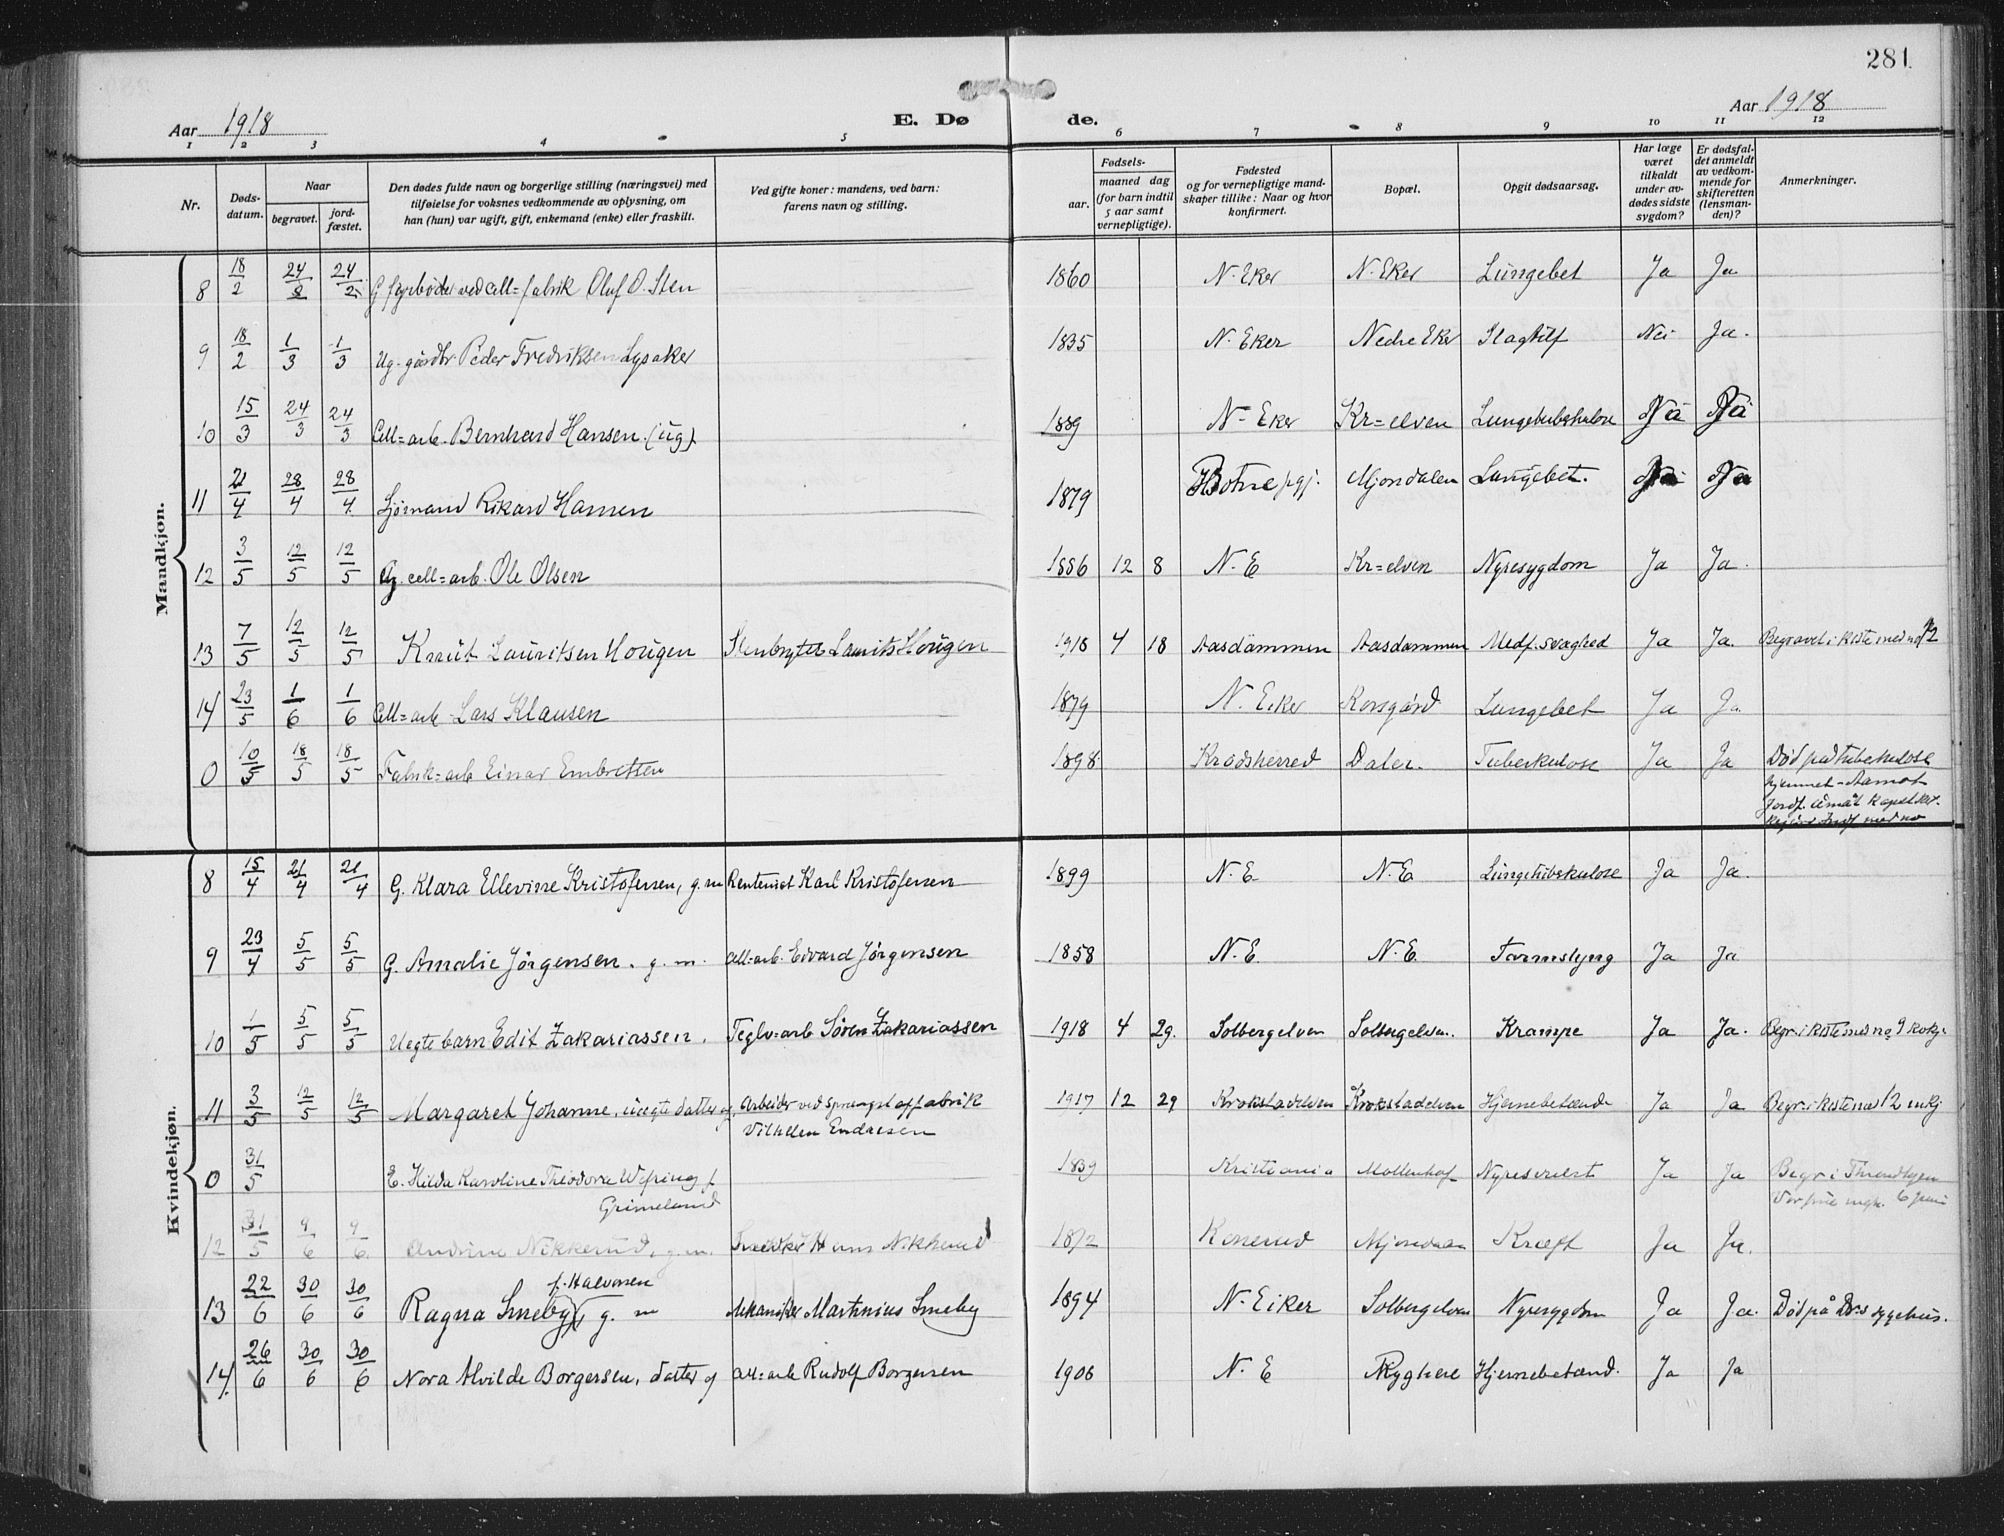 281
Aar 1918 E. Dø de. Aar 1918
1 2 3 4 5 6 7 8 9 10 11 12
Nr.
Døds-
datum.
Naar
begravet.
jord-
fæstet.
Den dødes fulde navn og borgerlige stilling (næringsvei) med
tilføielse for voksnes vedkommende av oplysning, om
han (hun) var ugift, gift, enkemand (enke) eller fraskilt.
Ved gifte koner: mandens, ved barn:
farens navn og stilling.
Fødsels-
aar.
maaned dag
(for barn indtil
5 aar samt
vernepligtige).
Fødested
og for vernepligtige mand-
skaper tillike: Naar og hvor
konfirmert.
Bopæl.
Opgit dødsaarsag.
Har læge
været
tilkaldt
under av-
dødes sidste
sygdom?
Er dødsfal-
det anmeldt
av vedkom-
mende for
skifteretten
(lensman-
den)?
Anmerkninger.
Mandkjøn.
8 18/2 24/2 24/2 G fyrbøder ved cell=fabrik Oluf O. Sten 1860 N. Eker N. Eker Lungebet Ja Ja
9 18/2 1/3 1/3 Ug. gårdbr. Peder Fredriksen Lysaker 1835 N. Eker Nedre Eker Slagtilf Nei Ja.
10 15/3 24/3 24/3 Cell=arb. Bernhard Hansen (ug). 1889 N. Eker Kr=elven Lungetuberkulose
11 21/4 28/4 28/4 Sjømand Rikard Hansen 1879 Botne pgj. Mjøndalen Lungebet.
12 3/5 12/5 12/5 G. cell=arb. Ole Olsen 1886 12 8 N. E Kr=elven Nyresygdom Ja Ja.
13 7/5 12/5 12/5 Knut Lauritsen Hougen Stenbryter Laurits Hougen 1918 4 18 Aasdammen Aasdammen Medf. svaghed Ja Ja. Begravet i kiste med no 12
14 23/5 1/6 1/6 Cell=arb. Lars Klausen 1879 N. Eker Korsgård Lungebet Ja Ja.
0 10/5 18/5 18/5 Fabrik=arb Einar Embretsen 1898 Krødsherred Daler. Tuberkulose Ja Ja Død på tuberkulose
hjemmet - Aamot
Jordf. Åmot kapel
Kvindekjøn.
8 15/4 21/4 21/4 G. Klara Ellevine Kristofersen, g.m Rentemst Karl Kristofersen 1899 N. E N. E Lungetuberkulose Ja Ja.
9 23/4 5/5 5/5 G. Amalie Jørgensen. g. m. cell=arb. Edvard Jørgensen 1858 N. E. N. E. Tarmslyng Ja Ja
10 1/5 5/5 5/5 Uegte barn Edit Zakariassen. Teglv=arb Søren Zakariassen 1918 4 29. Solbergelven Solbergelven. Krampe Ja Ja. Begr. i kiste med no 9
11 3/5 12/5 12/5 Margaret Johanne, uegte datter af Arbeider ved sprængstoffabrik 1917 12 29 Krokstadelven Krokstadelven Hjernebetænde Ja Ja Begr. i kiste no 12 mkj
Vilhelm Endresen
0 31/5 E. Hilda Karoline Theodora Wefring f. 1839 Kristiania Møllenhof Nyresvulst Ja Ja Begr. i Throndhjem
Grimelund
12 31/5 9/6 9/6 Andrine Nikkerud, g. m. Snedker Hans Nikkerud 1872 Konerud Mjøndalen Kræft Ja Ja.
f. Halvorsen
13 22/6 30/6 30/6 Ragna Smeby, g. m Mekaniker Martinius Smeby 1894 N. Eiker Solbergelven Nyresygdom Ja Ja. Død på Dr=s sygehus.
14 26/6 30/6 30/6 Nora Alvilde Borgersen, datter af cell=arb Rudolf Borgersen 1906 N. E Ryghkol Hjernebetænd. Ja Ja